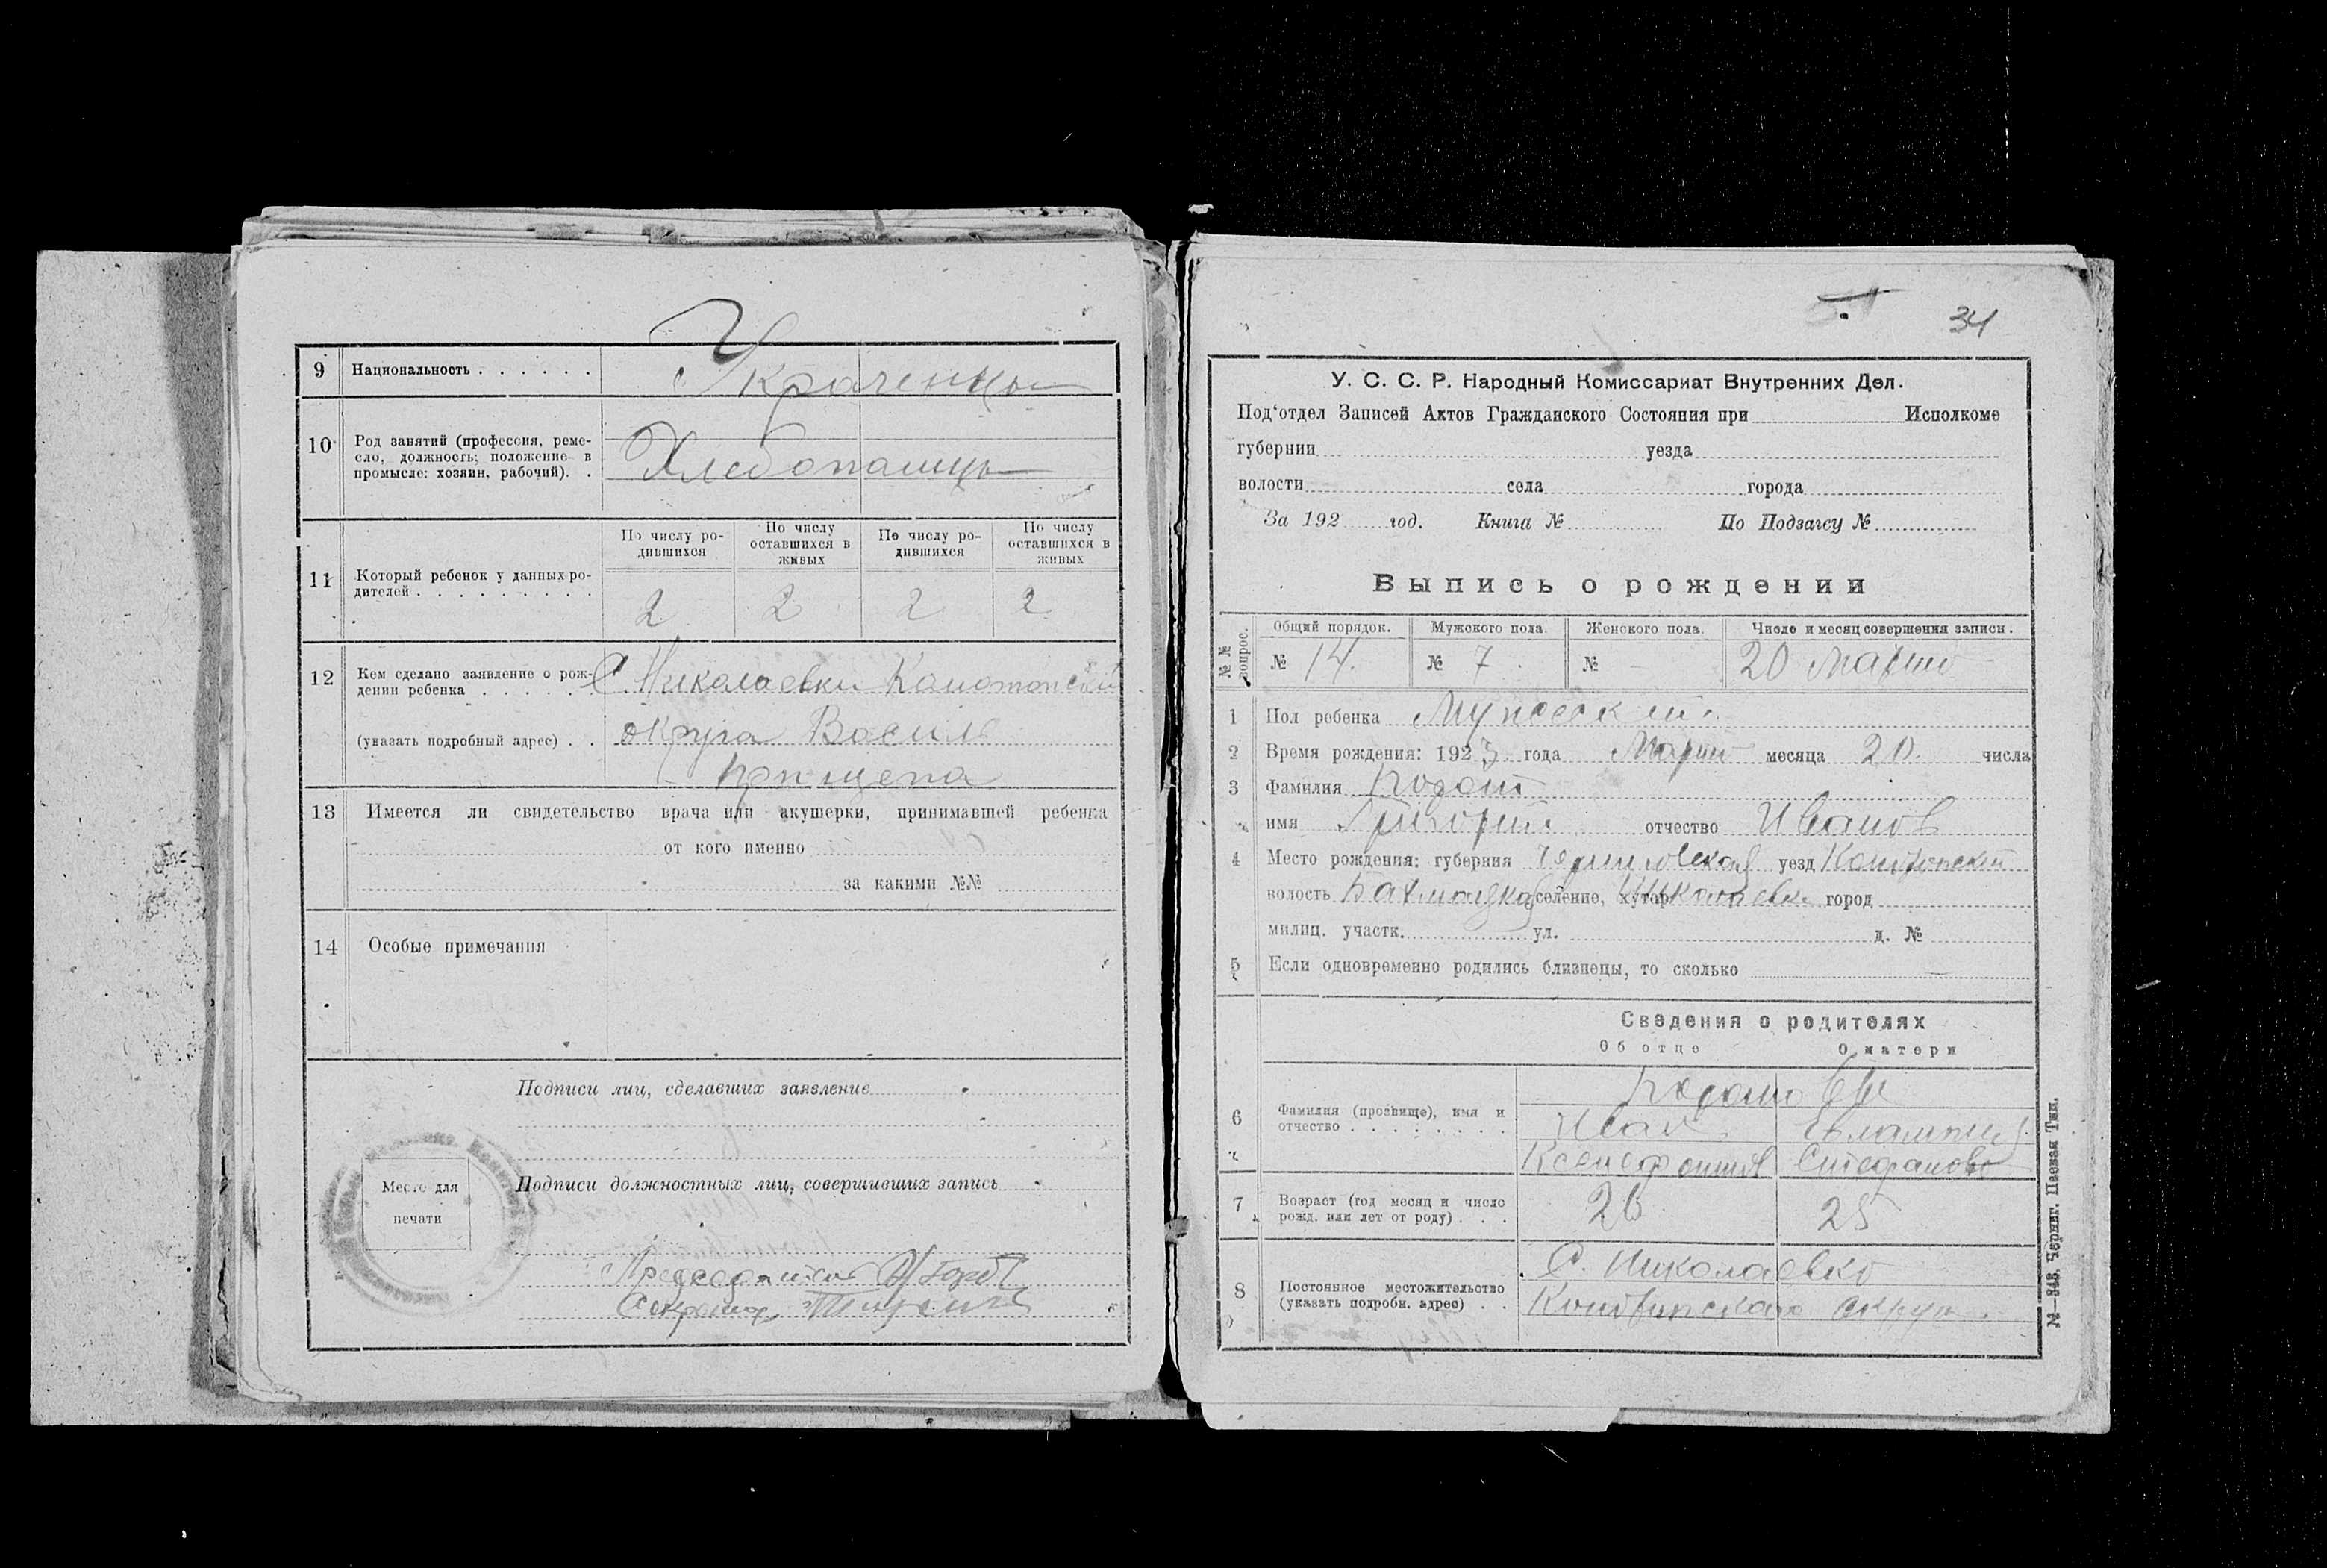 9 Национальность . . . . . .
Украченцы
10 Род занятий (профессия, реме-
сло, должность; положение в
промысле: хозяин, рабочий). .
Хлебопашцы
11 Который ребенок у данных ро-
дителей . . . . . . . . .
По числу ро-
дившихся
По числу
оставшихся в
живых
По числу ро-
дившихся
По числу
оставшихся в
живых
2 2 2 2
12 Кем сделано заявление о рож-
дении ребенка . . . . .
С. Николаевки Конотопской
(указать подробный адрес) . .
округа Василь
Прищепа
13 Имеется ли свидетельство врача или акушерки, принимавшей ребенка
от кого именно
за какими №№
14 Особые примечания
Подписи лиц, сделавших заявление
Подписи должностных лиц, совершивших запись
Место для
печати
Председатель
Секретарь
34
У. С. С. Р. Народный Комиссариат Внутренних Дел.
Под'отдел Записей Актов Гражданского Состояния при Исполкоме
губернии уезда
волости села города
За 192 год. Книга № По Подзагсу №
Выпись о рождении
№№ вопрос.
Общий порядок. Мужского пола. Женского пола. Число и месяц совершения записи.
№ 14. № 7. № - 20 Марта
1 Пол ребенка Мужской
2 Время рождения: 1923 года Март месяца 20 числа
3 Фамилия
имя Григорий отчество Иванов
4 Место рождения: губерния Черниговская уезд Конотопский
волость Бахмацкая селение, хутор Николаевка город
милиц. участк. ул. д. №
5 Если одновременно родились близнецы, то сколько —
Сведения о родителях
Об отце О матери
6 Фамилия (прозвище), имя и
отчество . . . . . . . .
Иван Евлампия
Ксенофонтов Стефанова
7 Возраст (год месяц и число
рожд. или лет от роду) . . .
26 25
8 Постоянное местожительство
(указать подробн. адрес) . .
С. Николаевка
Конотопского округа.
№—348. Черниг. Паевая Тип.